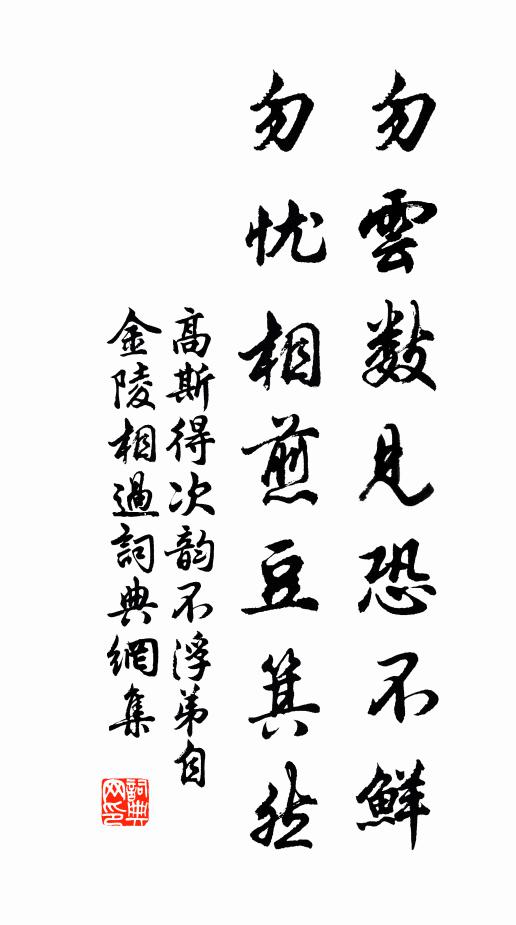 勿雲数見恐不鮮
勿忧相煎豆箕然
高斯得次韵不浮弟自
金陵相過詞典網集
詞典网印